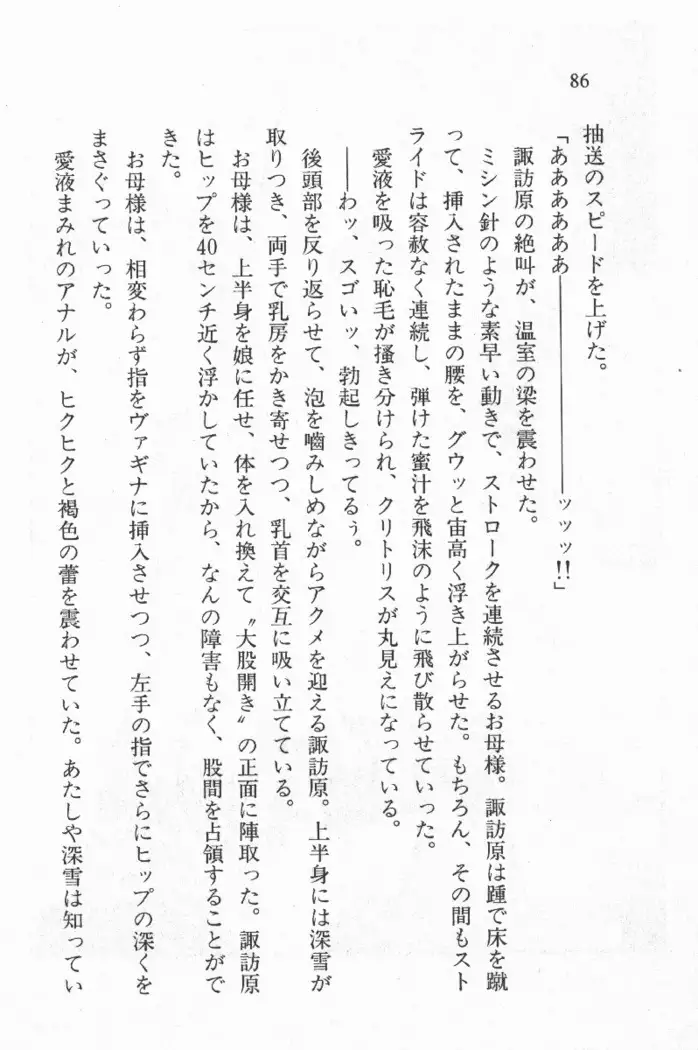 86
抽送のスピードを上げた。
「ああああああ――――――――ッッッ!!」
諏訪原の絶叫が、温室の梁を震わせた。
ミシン針のような素早い動きで、ストロークを連続させるお母様。諏訪原は踵で床を蹴
って、挿入されたままの腰を、グウッと宙高く浮き上がらせた。もちろん、その間もスト
ライドは容赦なく連続し、弾けた蜜汁を飛沫のように飛び散らせていった。
愛液を吸った恥毛が掻き分けられ、クリトリスが丸見えになっている。
――わッ、スゴいッ、勃起しきってるぅ。
後頭部を反り返らせて、泡を嚙みしめながらアクメを迎える諏訪原。上半身には深雪が
取りつき、両手で乳房をかき寄せつつ、乳首を交互に吸い立てている。
お母様は、上半身を娘に任せ、体を入れ換えて〝大股開き〟の正面に陣取った。諏訪原
はヒップを40センチ近く浮かしていたから、なんの障害もなく、股間を占領することがで
きた。
お母様は、相変わらず指をヴァギナに挿入させつつ、左手の指でさらにヒップの深くを
まさぐっていった。
愛液まみれのアナルが、ヒクヒクと褐色の蕾を震わせていた。あたしや深雪は知ってい